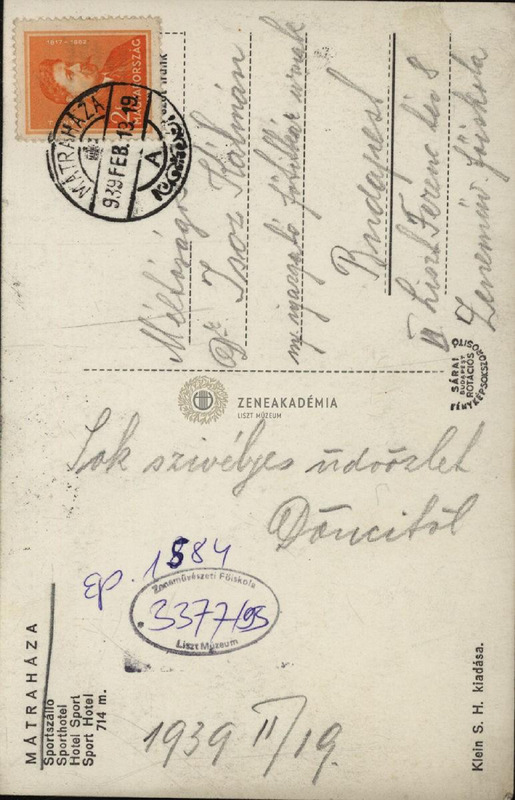 1817-1882
MAGYARORSZÁG
MÁTRAHÁZA
939 FEB. 13-19
A
Méltóságos
Dr Isoz Kálmán
ny. igazgató főtitkár úrnak
Budapest
VI Liszt Ferenc tér 8
Zeneműv. főiskola
SÁRAI
BUDAPEST
ROTÁCIÓS
FÉNYKÉPSOKSZOR
OSÍTÓ
ZENEAKADÉMIA
LISZT MÚZEUM
Sok szívélyes üdvözlet
Döncitől
ep. 1584
Zeneművészeti Főiskola
3377/95
Liszt Múzeum
1939 II/19.
MÁTRAHÁZA
Sportszálló
Sporthotel
Hotel Sport
Sport Hotel
714 m.
Klein S. H. kiadása.